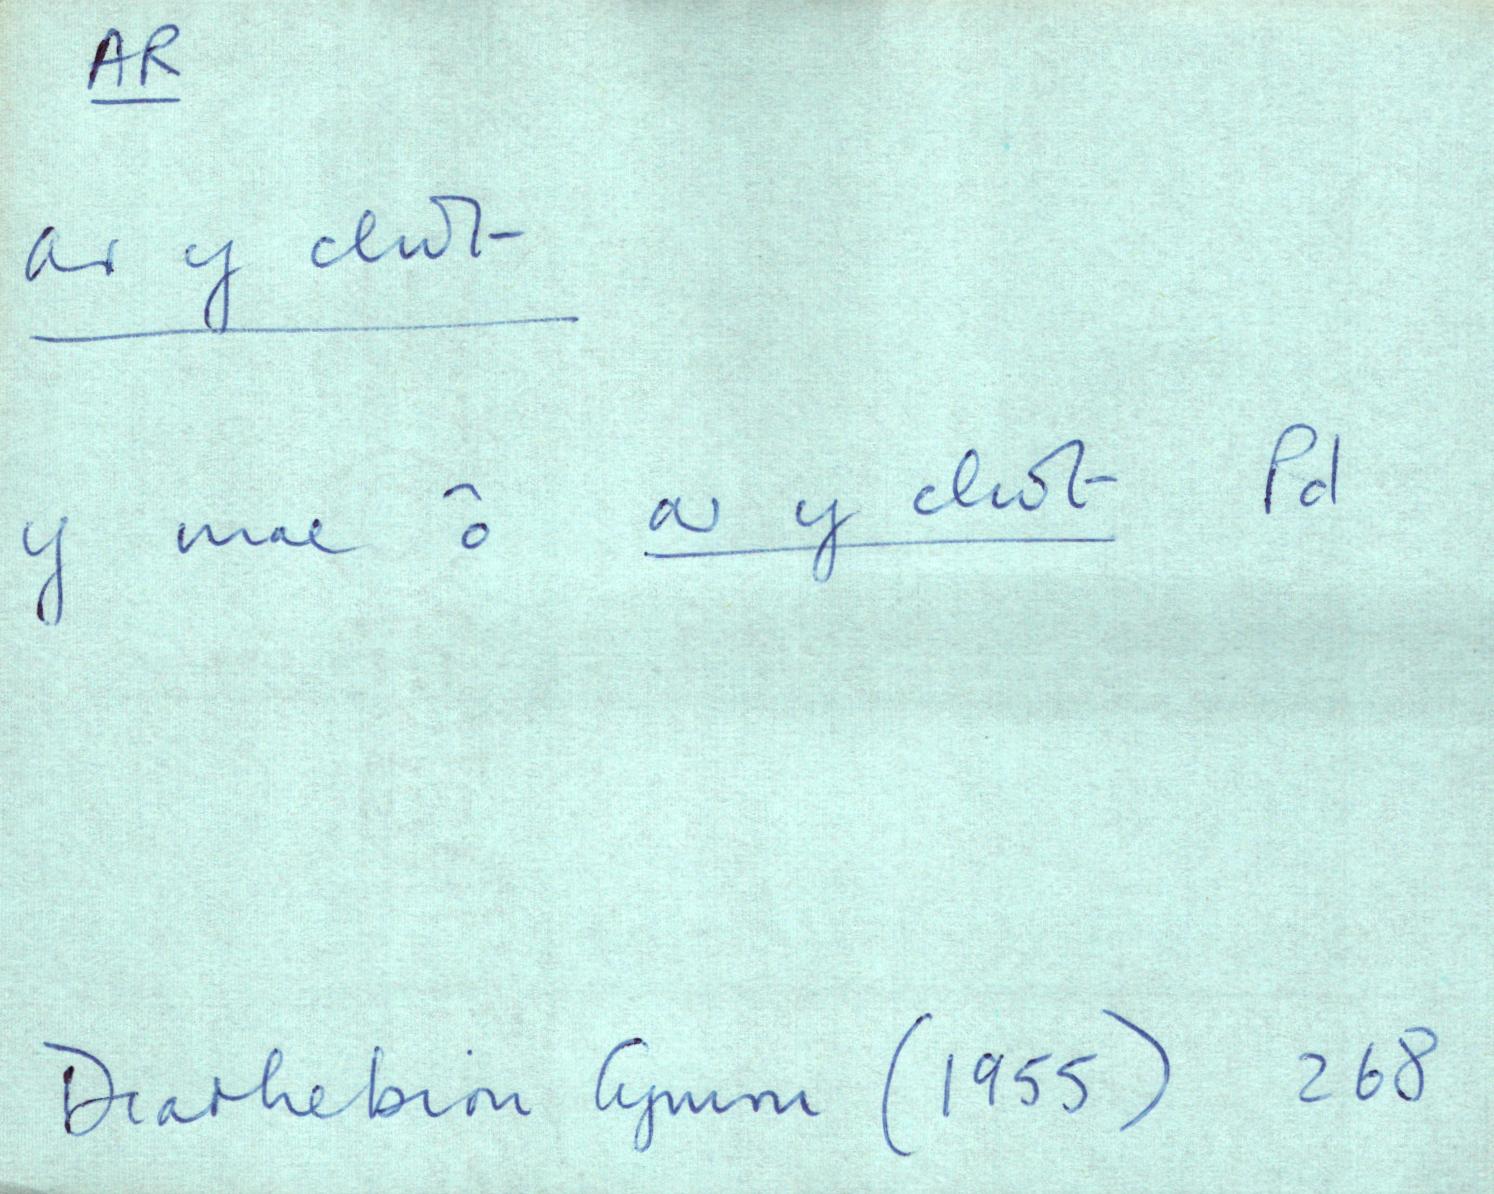 AR
ar y clwt
y mae ô ar y clwt Pd
Diarhebion Cymru (1955) 268